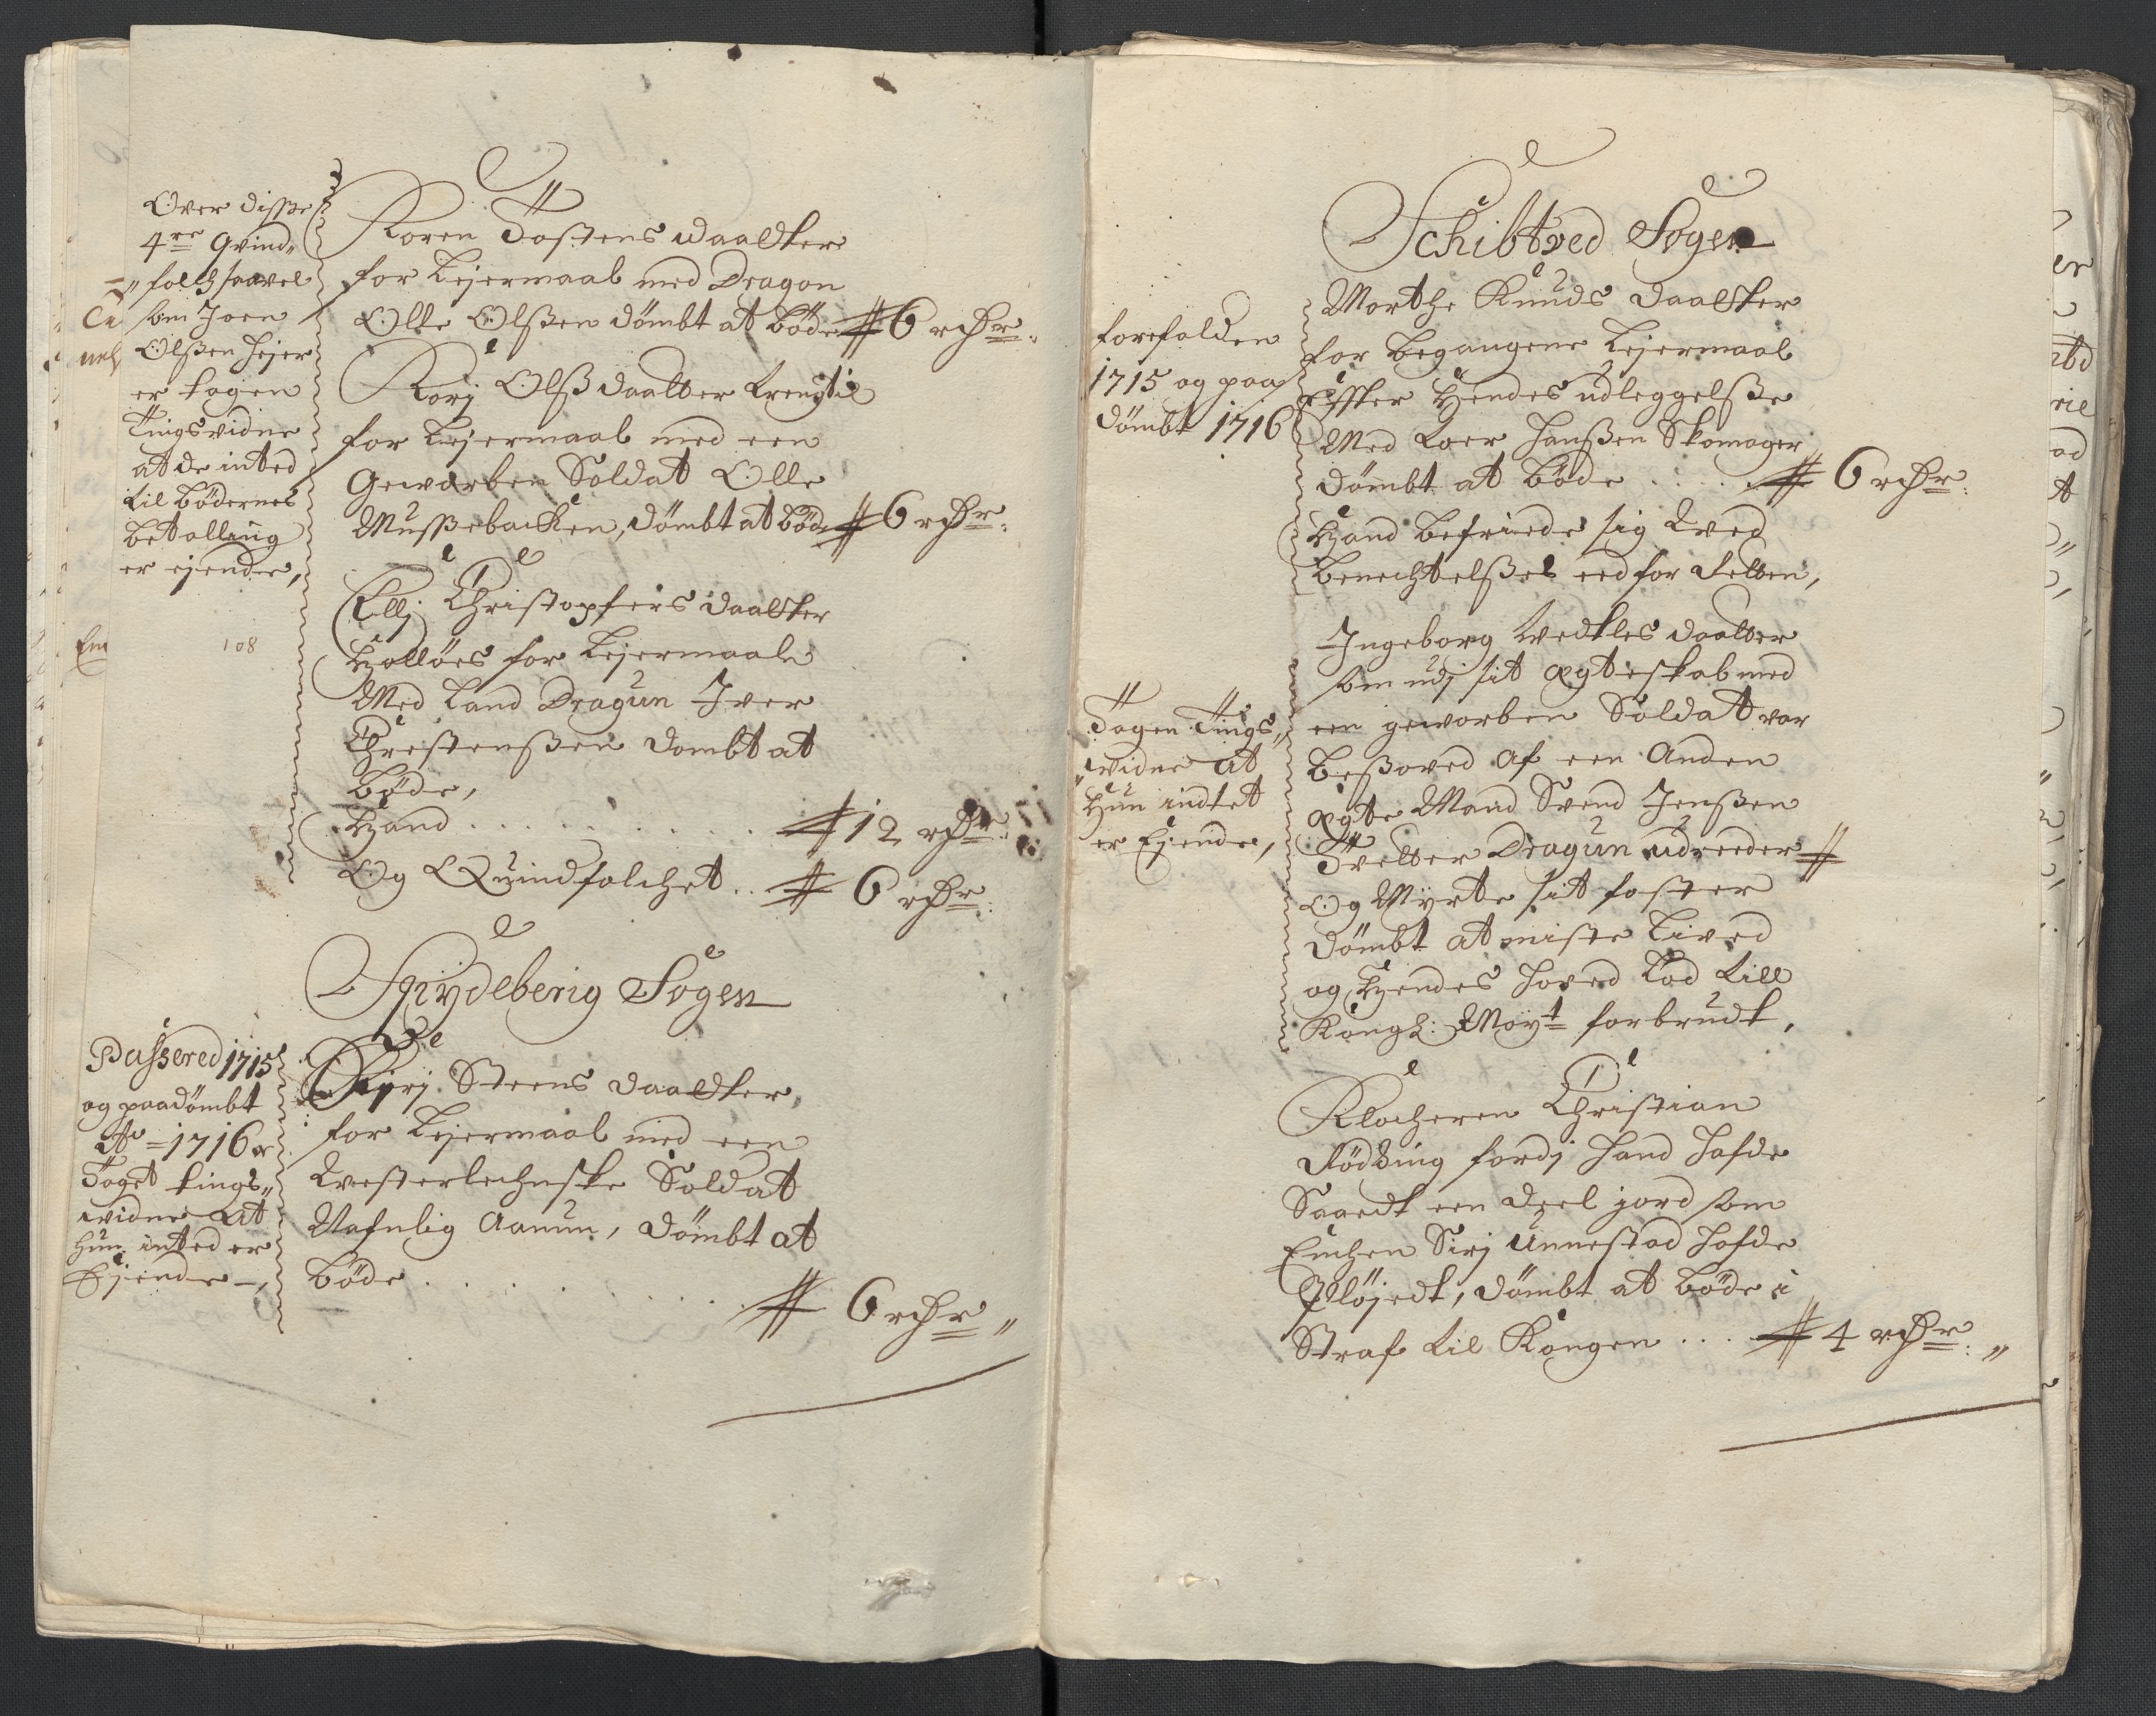 Over disse
4re Qvind„
„folch saavel
som Joen
Olßen Hejer
er tagen
Tingsvidne
at de inted
til bødernes
betalling
er ejende,
108
Karen Tostens daatter
for Lejermaal med Dragon
Olle Olßen dömbt at bøde 6 rdr:
Karj Olß daatter
for Lejermaal med een
Geworben Soldat Olle
Mussebachen, dömbt at bøde 6 rdr:
Ellj Christophers daatter
for Lejermaal
Med Land Dragun Iver
Christenßen dömbt at
bøde,
Hand . . . . . . . . 12 rdr:
Og Quindfolchet . . 6 rdr:
Spydeberig Sogen
Passered 1715
og paadömbt
Ao 1716 er
Taget tings„
widne at
hun inted er
Ejende –,
Steens daatter
for Lejermaal med een
Westerlehnske Soldat
Nafnlig Aanun, dömbt at
bøde . . . . . . . . 6 rdr „
Schibtved Sogen
forefalden
1715 og paa
dömbt 1716
Marthe Knuds daatter
for begangene Lejermaal
effter Hendes udleggelße
Med Hanßen Skomager
dömbt at bøde . . . . . 6 rdr:
Hand befriede sig Wed
benechtelßes eed for Retten,
Tagen Tings„
„widne at
Hun indtet
er Ejende,
Ingeborg daatter
som udj sit egteskab med
een geworben Soldat var
besoved af een Anden
egte Mand Svend Jenßen
Tvetter Dragun udreeder
og Myrte sit foster
dömbt at miste Lived
og Hendes Hoved Lod till
Kongl: Mayt forbrudt,
Klocheren Christian
Rödding fordj Hand Hafde
Saaedt een deel jord som
Enchen Sirj Unnestad Hafde
Pløjedt, dömbt at bøde i
Straf til Kongen . . . 4 rdr: „